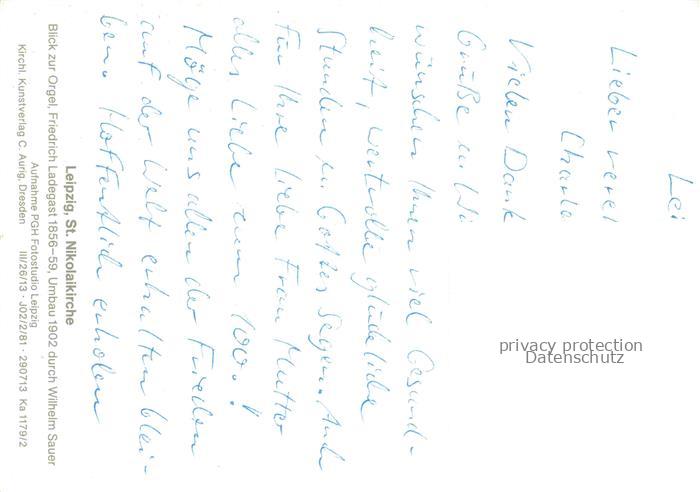 Lei
Lieber verel
Charlo
Vielen Dank
Grüße u. Wü
wünschen Ihnen viel Gesund-
heit, wertvolle glückliche
Stunden in Gottes Segen. Auch
für Ihre liebe Frau Mutter
alles Liebe zum 100.!
Möge uns allen der Frieden
auf der Welt erhalten blei-
ben. Hoffentlich erholen
Leipzig, St. Nikolaikirche
Blick zur Orgel, Friedrich Ladegast 1856–59, Umbau 1902 durch Wilhelm Sauer
Aufnahme PGH Fotostudio Leipzig
Kirchl. Kunstverlag C. Aurig, Dresden III/26/13 · J02/2/81 · 290713 Ka 1179/2
privacy protection
Datenschutz